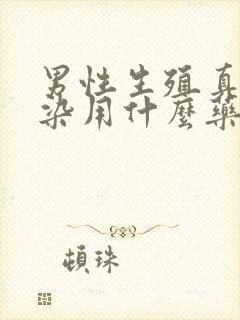 男性生殖真
染用什麼藥
頓珠